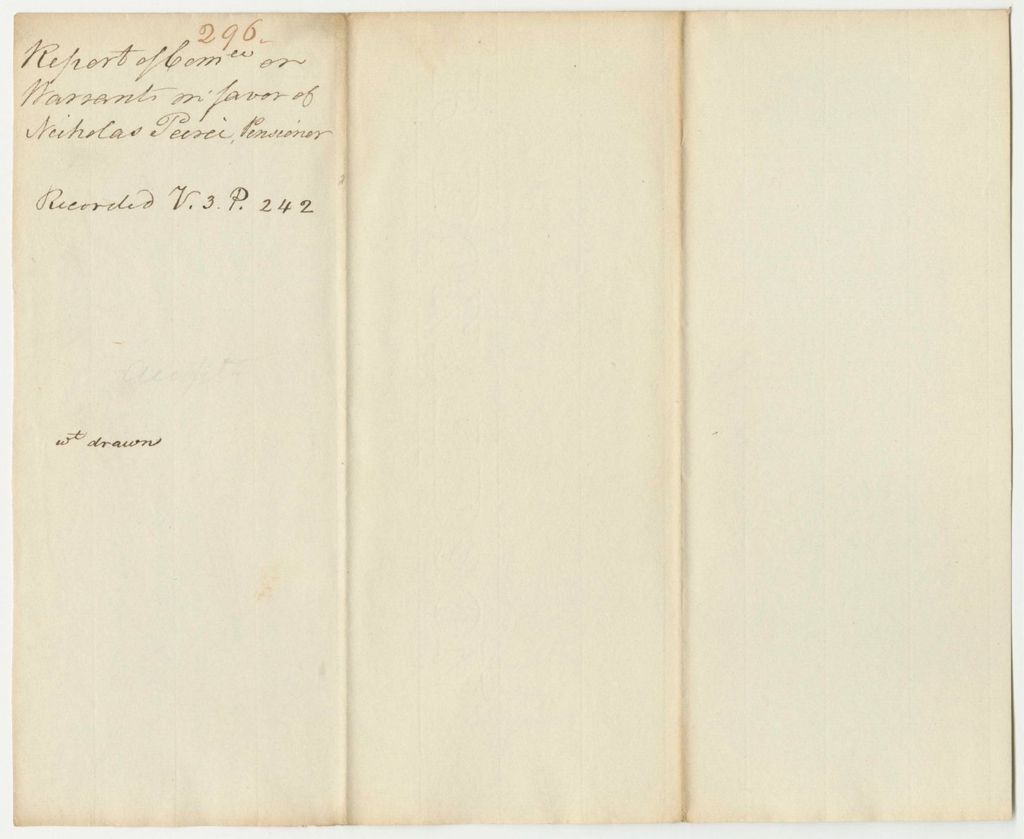 296.
Report of Comee on
Warrants in favor of
Nicholas Peirce, Pensioner
Recorded V. 3. P. 242
wt drawn